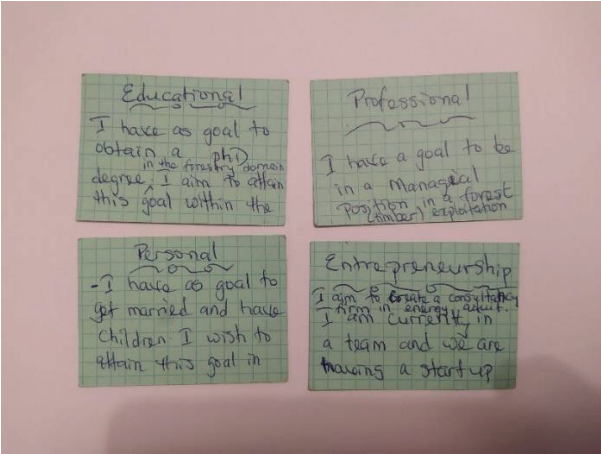 Educational
I have as goal to
obtain a phD
in the forestry domain
degree. I aim to attain
this goal within the
Professional
I have a goal to be
in a Manageal
Position in a forest
(timber) exploitation
Personal
-I have as goal to
get married and have
children. I wish to
attain this goal in
Entrepreneurship
I aim to create a consultancy
firm in energy
I am currently in
a team and we are
having a startup